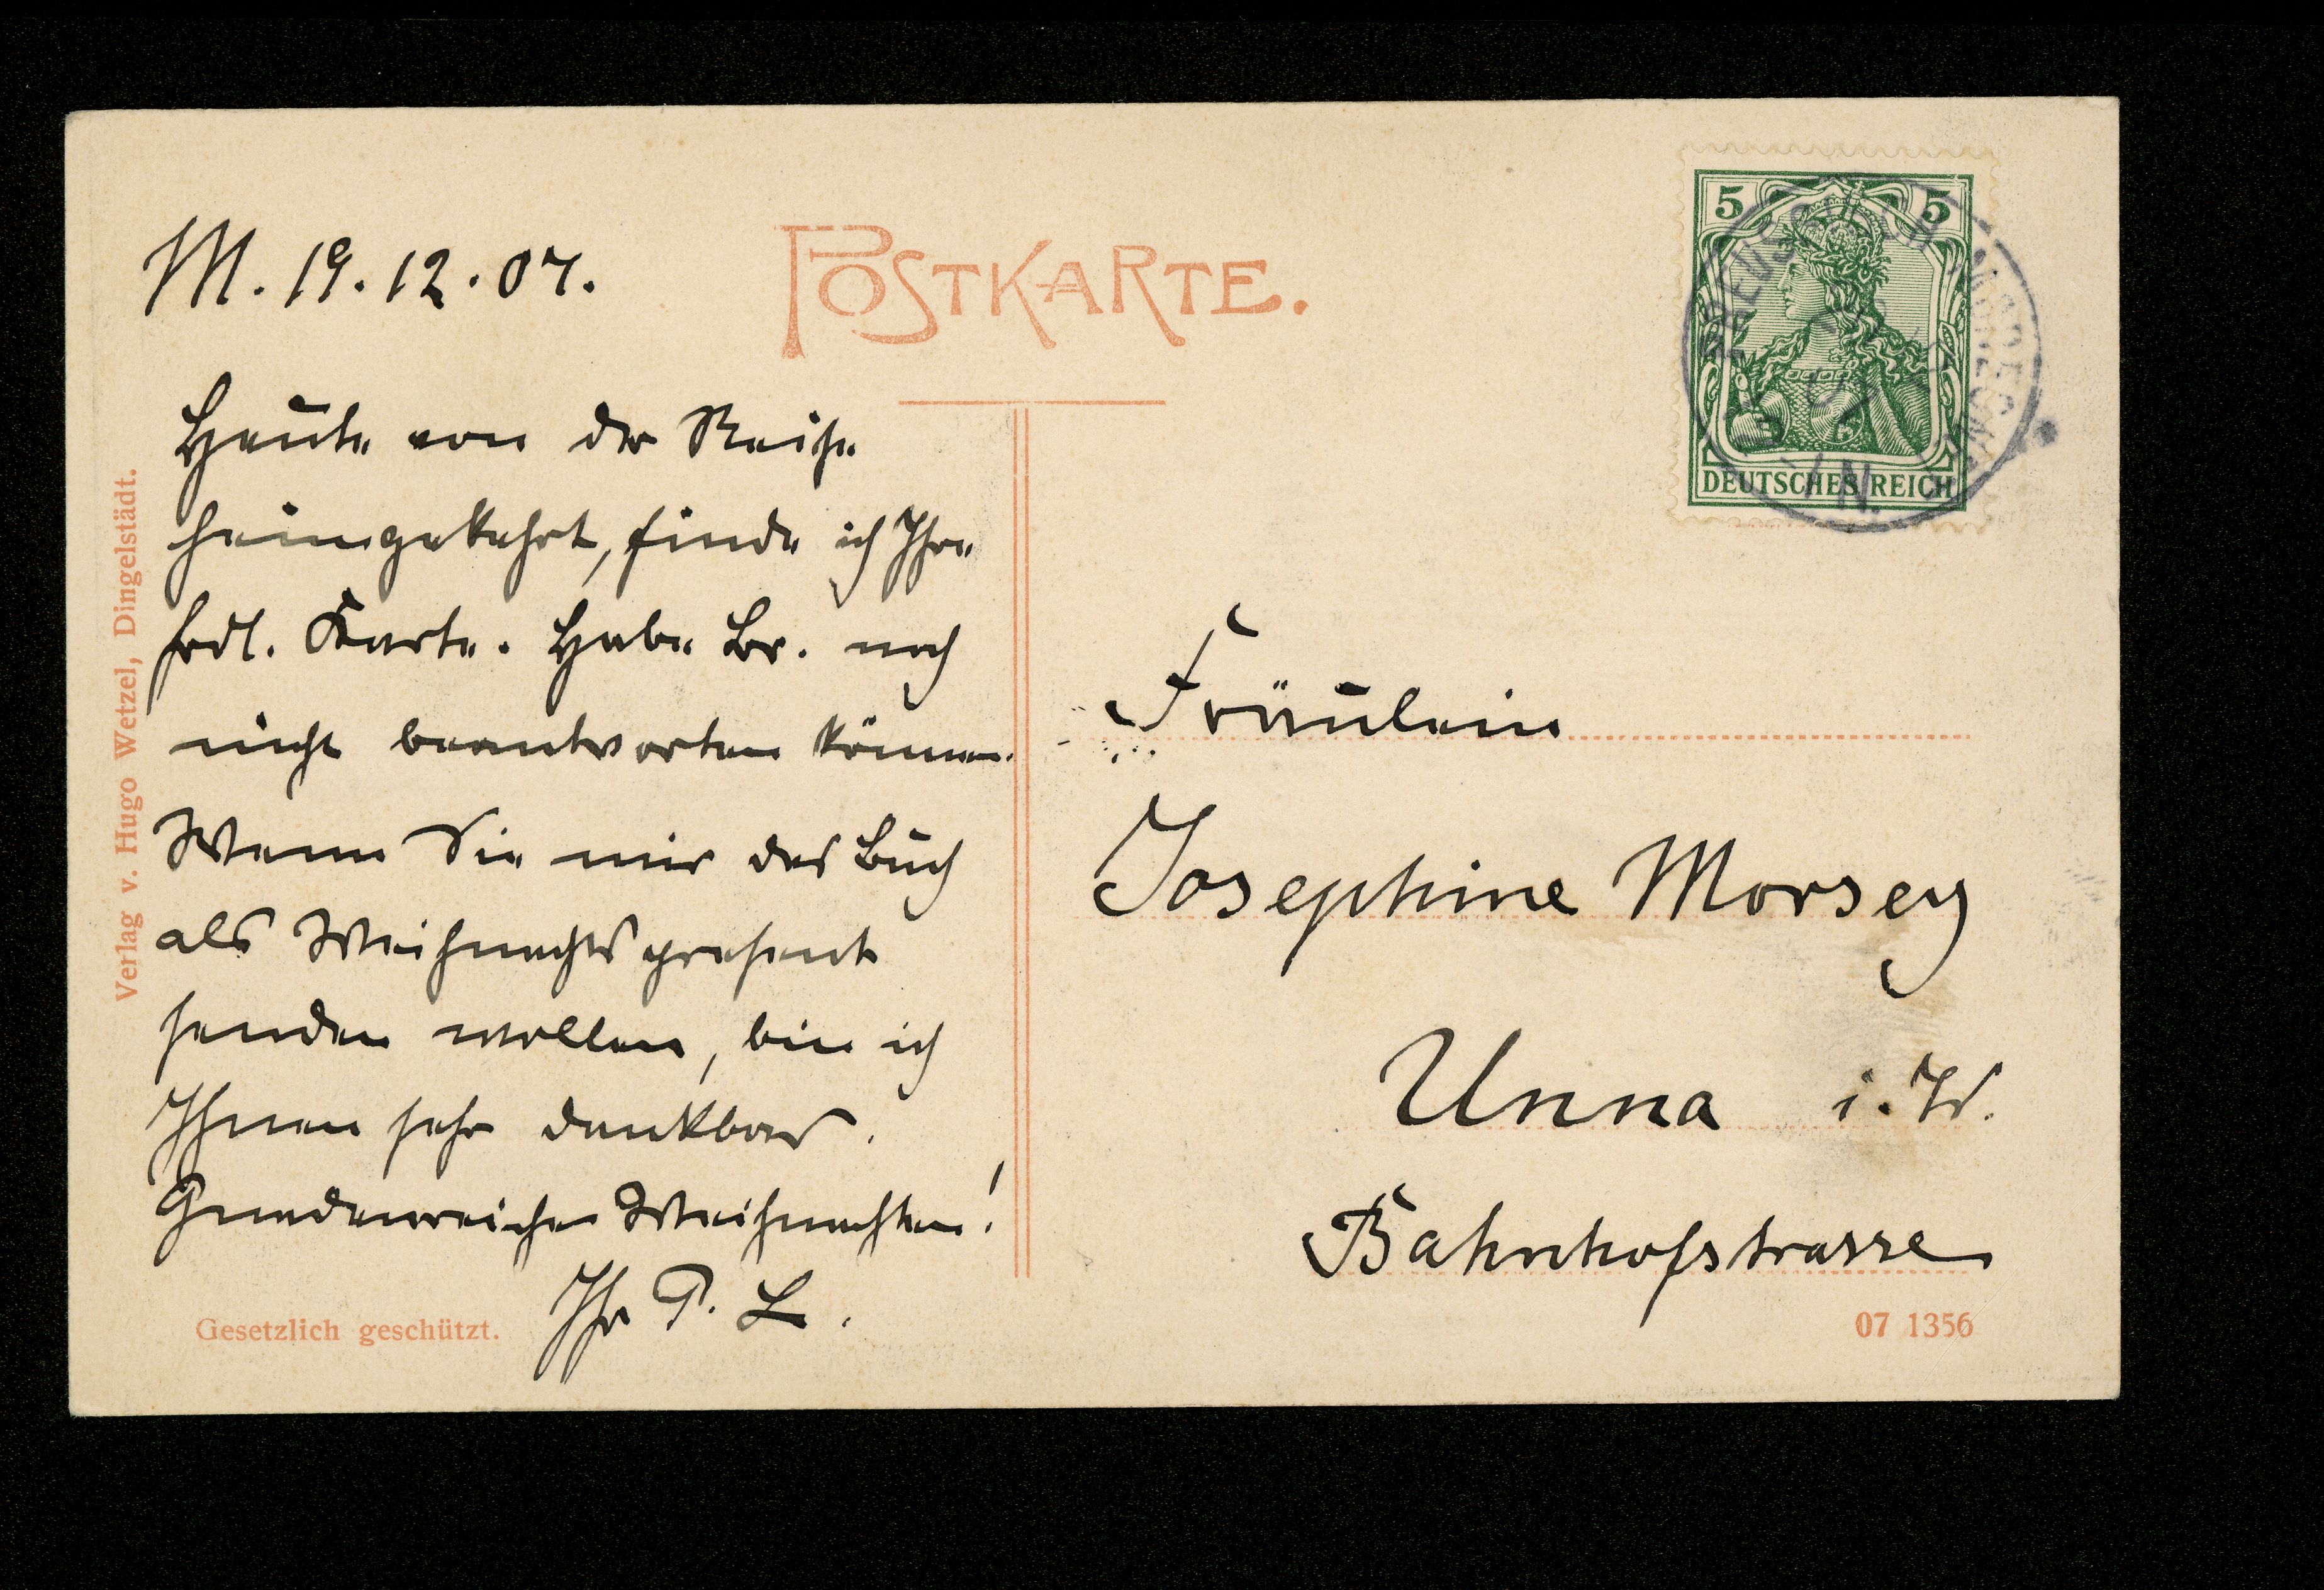 M. 19.12.07.
Heute von der Reise
heimgekehrt, finde ich Ihre
frdl. Karte. Habe Br. noch
nicht beantworten können.
Wenn Sie mir das Buch
als Weihnachtspresent
senden wollen, bin ich
Ihnen sehr dankbar.
Gnadenreiche Weihnachten!
Ihr P. L.
Verlag v. Hugo Wetzel, Dingelstädt.
Gesetzlich geschützt.
POSTKARTE.
5 5
DEUTSCHES REICH
Fräulein
Josephine Morsey
Unna i. W.
Bahnhofstrasse
07 1356